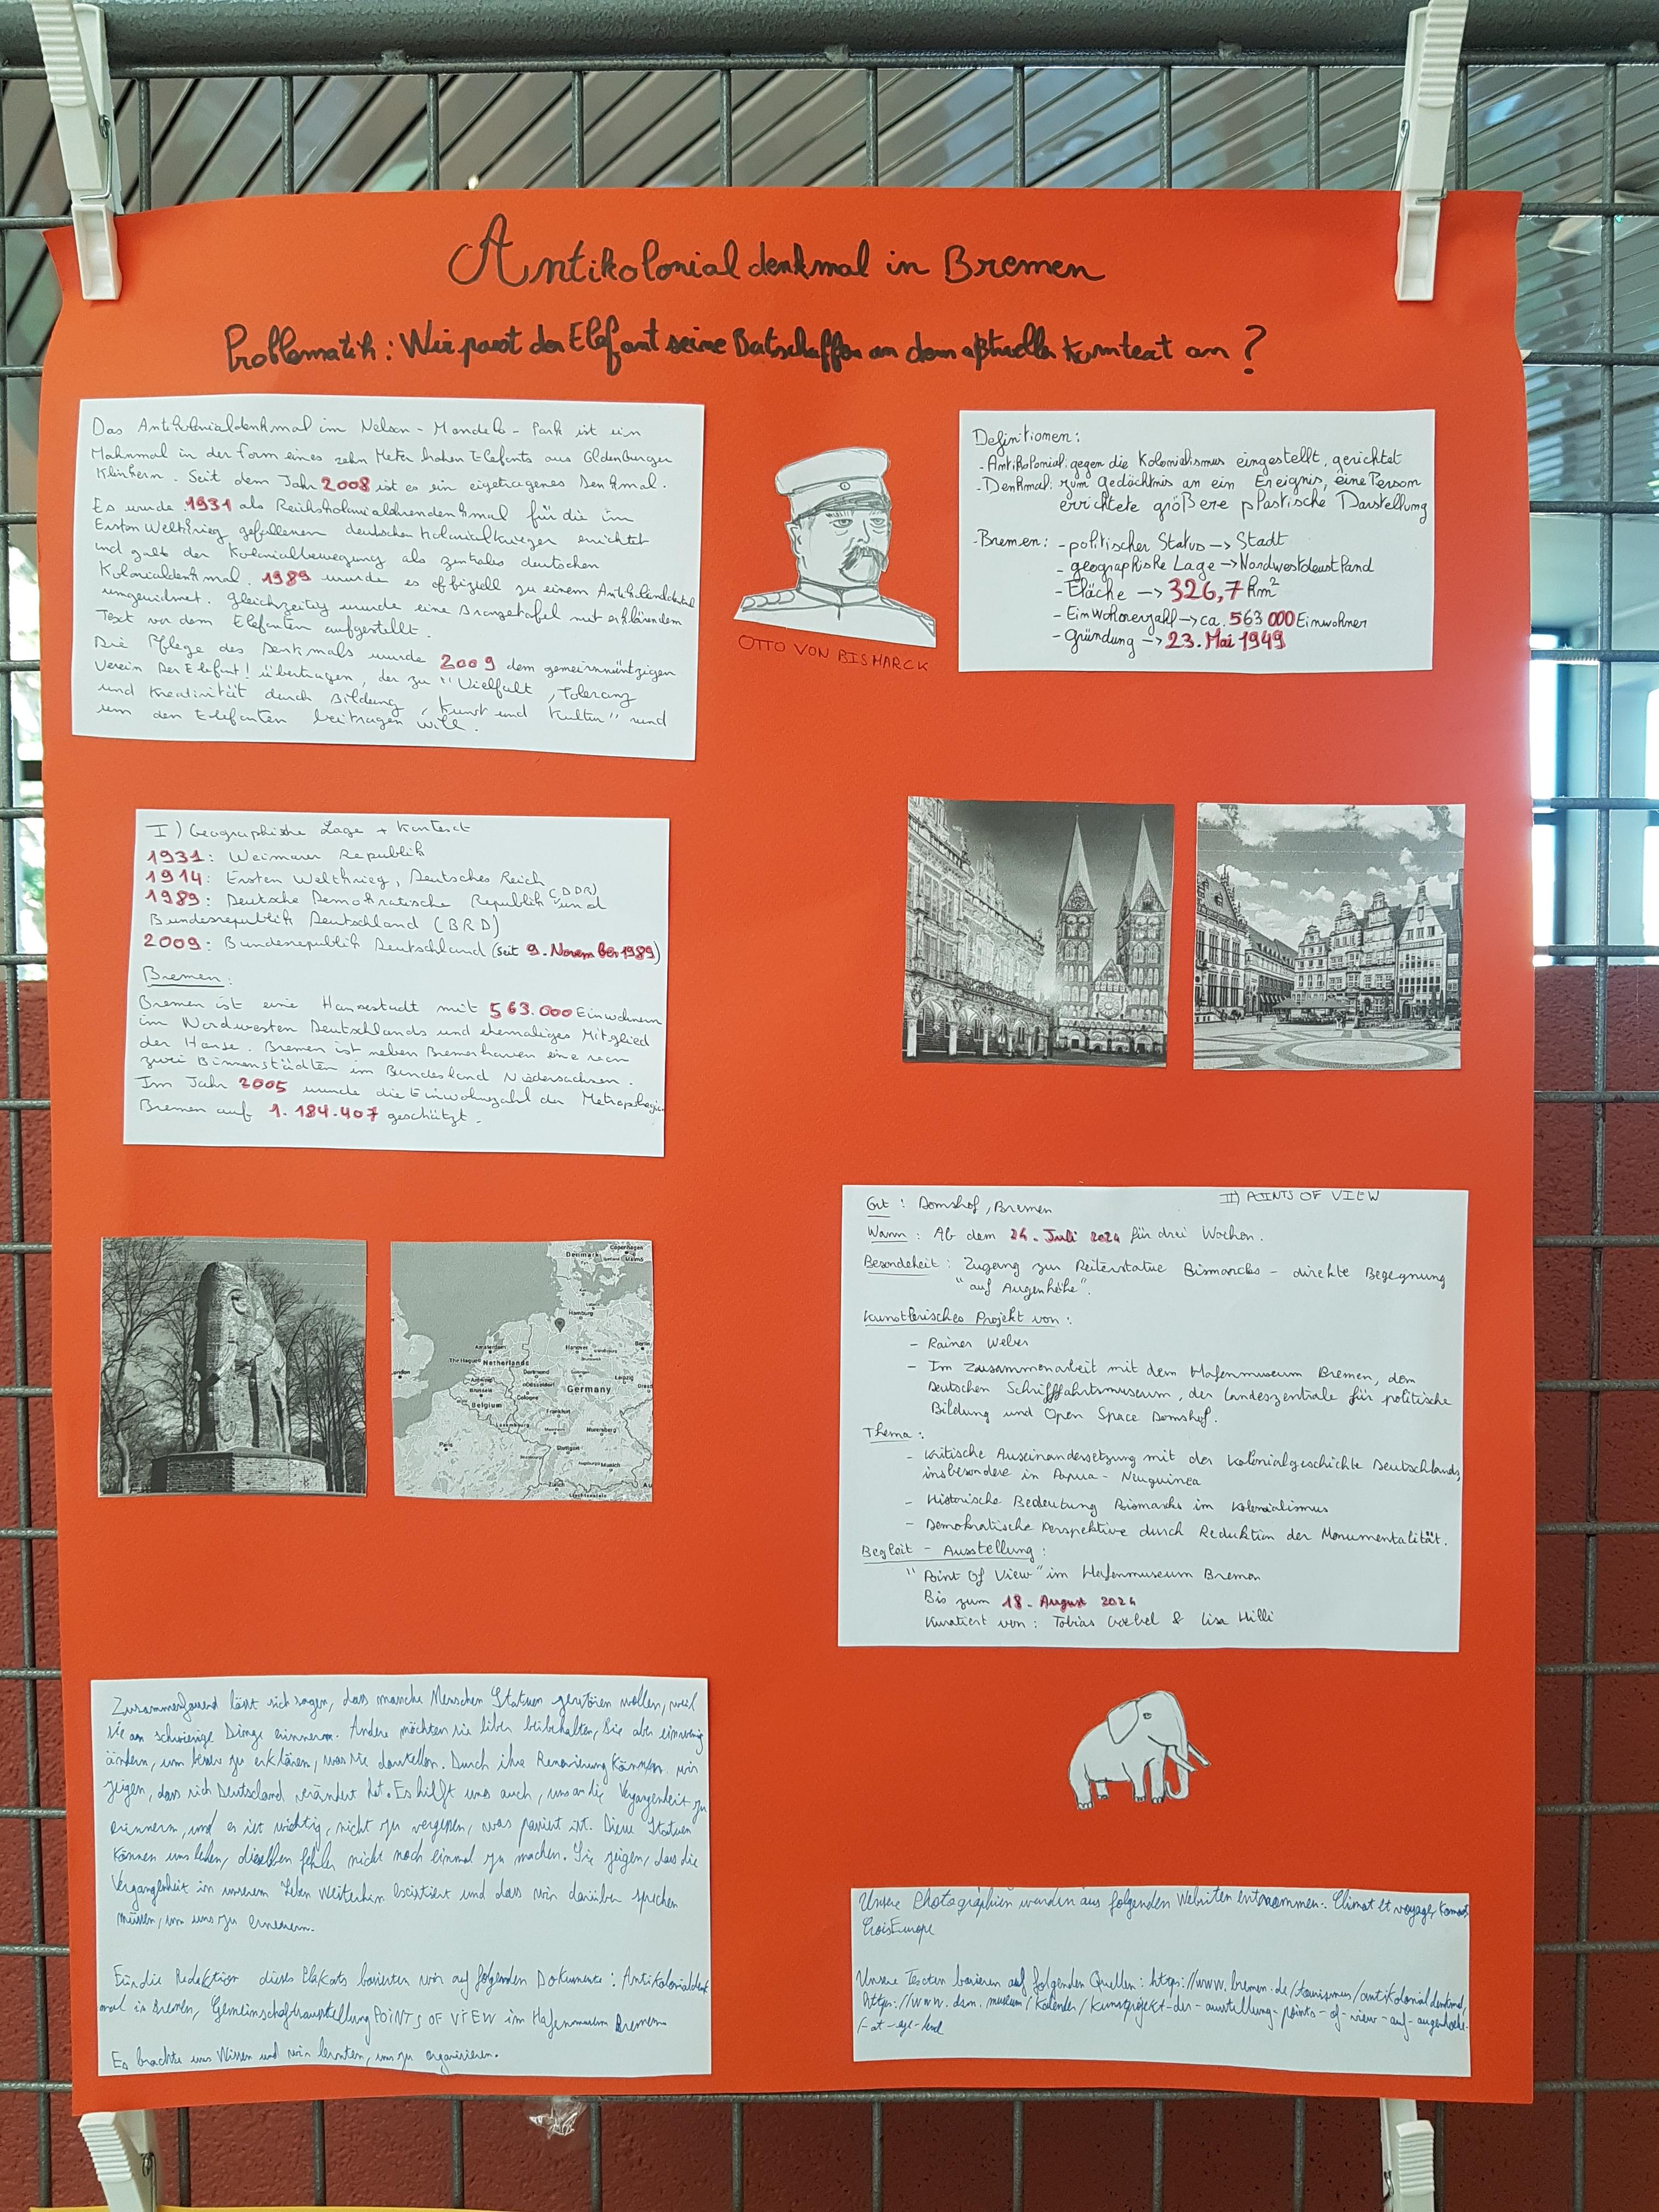 Antikolonialdenkmal in Bremen
Problematik: Wie passt der Elefant seine Botschaffen an dem aktuellen Kontext an?
Das Antikolonialdenkmal im Nelson-Mandela-Park ist ein
Mahnmal in der Form eines zehn Meter hohen Elefants aus Oldenburger
Klinkern. Seit dem Jahr 2008 ist es ein eigetragenes Denkmal.
Es wurde 1931 als Reichskolonialehrendenkmal für die im
Ersten Weltkrieg gefallenen deutschen Kolonialkrieger errichtet
und galt der Kolonialbewegung als zentrales deutschen
Kolonialdenkmal. 1989 wurde es offiziell zu einem
umgewidmet. Gleichzeitig wurde eine mit erklärendem
Text vor dem Elefanten aufgestellt.
Die Pflege des Denkmals wurde 2009 dem gemeinnüntzigen
Verein Der Elefant! übertragen, der zu "Vielfalt, Toleranz
und Kreativität durch Bildung, Kunst und Kultur" rund
um den Elefanten beitragen will.
OTTO VON BISMARCK
Definitionen:
- Antikolonial: gegen die Kolonialismus eingestellt, gerichtet
- Denkmal: zum Gedächtnis an ein Ereignis, eine Person
errichtete größere plastische Darstellung
- Bremen: - politischer Status → Stadt
- geographiske Lage → Nordwestdeustland
- Fläche → 326,7 km²
- Einwohnerzahl → ca. 563 000 Einwohner
- Gründung → 23. Mai 1949
I) Geographische Lage + Kontext
1931: Weimarer Republik
1914: Ersten Weltkrieg, Deutsches Reich
1989: Deutsche Demokratische Republik (DDR) und
Bundesrepublik Deutschland (BRD)
2009: Bundesrepublik Deutschland (seit 9. November 1989)
Bremen:
Bremen ist eine Hansestadt mit 563.000 Einwohnern
im Nordwesten Deutschlands und ehemaliges Mitglied
der Hanse. Bremen ist neben Bremerhaven eine von
zwei Binnenstädten im Bundesland Niedersachsen.
Im Jahr 2005 wurde die Einwohnzahl der
Bremen auf 1.184.407 geschätzt.
Denmark
Copenhagen
Malmö
Hamburg
Amsterdam
The Hague
Netherlands
Hanover
Berlin
Dortmund
Düsseldorf
Leipzig
Cologne
Germany
Brussels
Belgium
Frankfurt
Luxembourg
Nuremberg
Paris
Stuttgart
Munich
Zürich
Liechtenstein
II) POINTS OF VIEW
Ort : Domshof, Bremen
Wann : Ab dem 24. Juli 2024 für drei Wochen.
Besondeheit : Zugang zur Reiterstatue Bismarcks - direkte Begegnung
"auf Augenhöhe".
Kunstlerisches Projekt von :
- Rainer Weber
- Im Zusammenarbeit mit dem Hafenmuseum Bremen, dem
Deutschen Schifffahrtsmuseum, der Landeszentrale für politische
Bildung und Open Space Domshof.
Thema :
- Kritische Auseinandersetzung mit der Kolonialgeschichte Deutschlands,
insbesondere in Papua-Neuguinea
- Historische Bedeutung Bismarcks im Kolonialismus
- Demokratische Perspektive durch Reduktion der Monumentalität.
Begleit - Ausstellung :
"Point Of View" im Hafenmuseum Bremen
Bis zum 18. August 2024
Kuratiert von : Tobias Goebel & Lisa Hilli
Zusammenfassend lässt sich sagen, dass manche Menschen Statuen zerstören wollen, weil
sie an schwierige Dinge erinnern. Andere möchten sie liber beibehalten, Sie aber einwenig
ändern, um besser zu erklären, was sie darstellen. Durch ihre Renovierung können wir
zeigen, dass sich Deutschland verändert hat. Es hilft uns auch, uns an die Vergangenheit zu
erinnern, und es ist wichtig, nicht zu vergessen, was passiert ist. Diese Statuen
können uns lehren, dieselben fehler nicht noch einmal zu machen. Sie zeigen, dass die
Vergangenheit in unserem Leben weiterhin existiert und dass wir darüber sprechen
müssen, um uns zu erneuern.
Für die Redaktion dieses Plakats basierten wir auf folgenden Dokumente : Antikolonialdenk
mal in Bremen, Gemeinschaftsausstellung POINTS OF VIEW im Hafenmuseum Bremen
Es brachte uns Wissen und wir lernten, uns zu organisieren.
Unsere Photographien wurden aus folgenden Websiten entnommen: Climat et voyage,
CroisiEurope
Unsere Texten basieren auf folgenden Quellen : https://www.bremen.de/tourismus/antikolonialdenkmal,
https://www.dsm.museum/kalender/kunstprojekt-der-ausstellung-points-of-view-auf-augenhoehe-
-at-eye-level